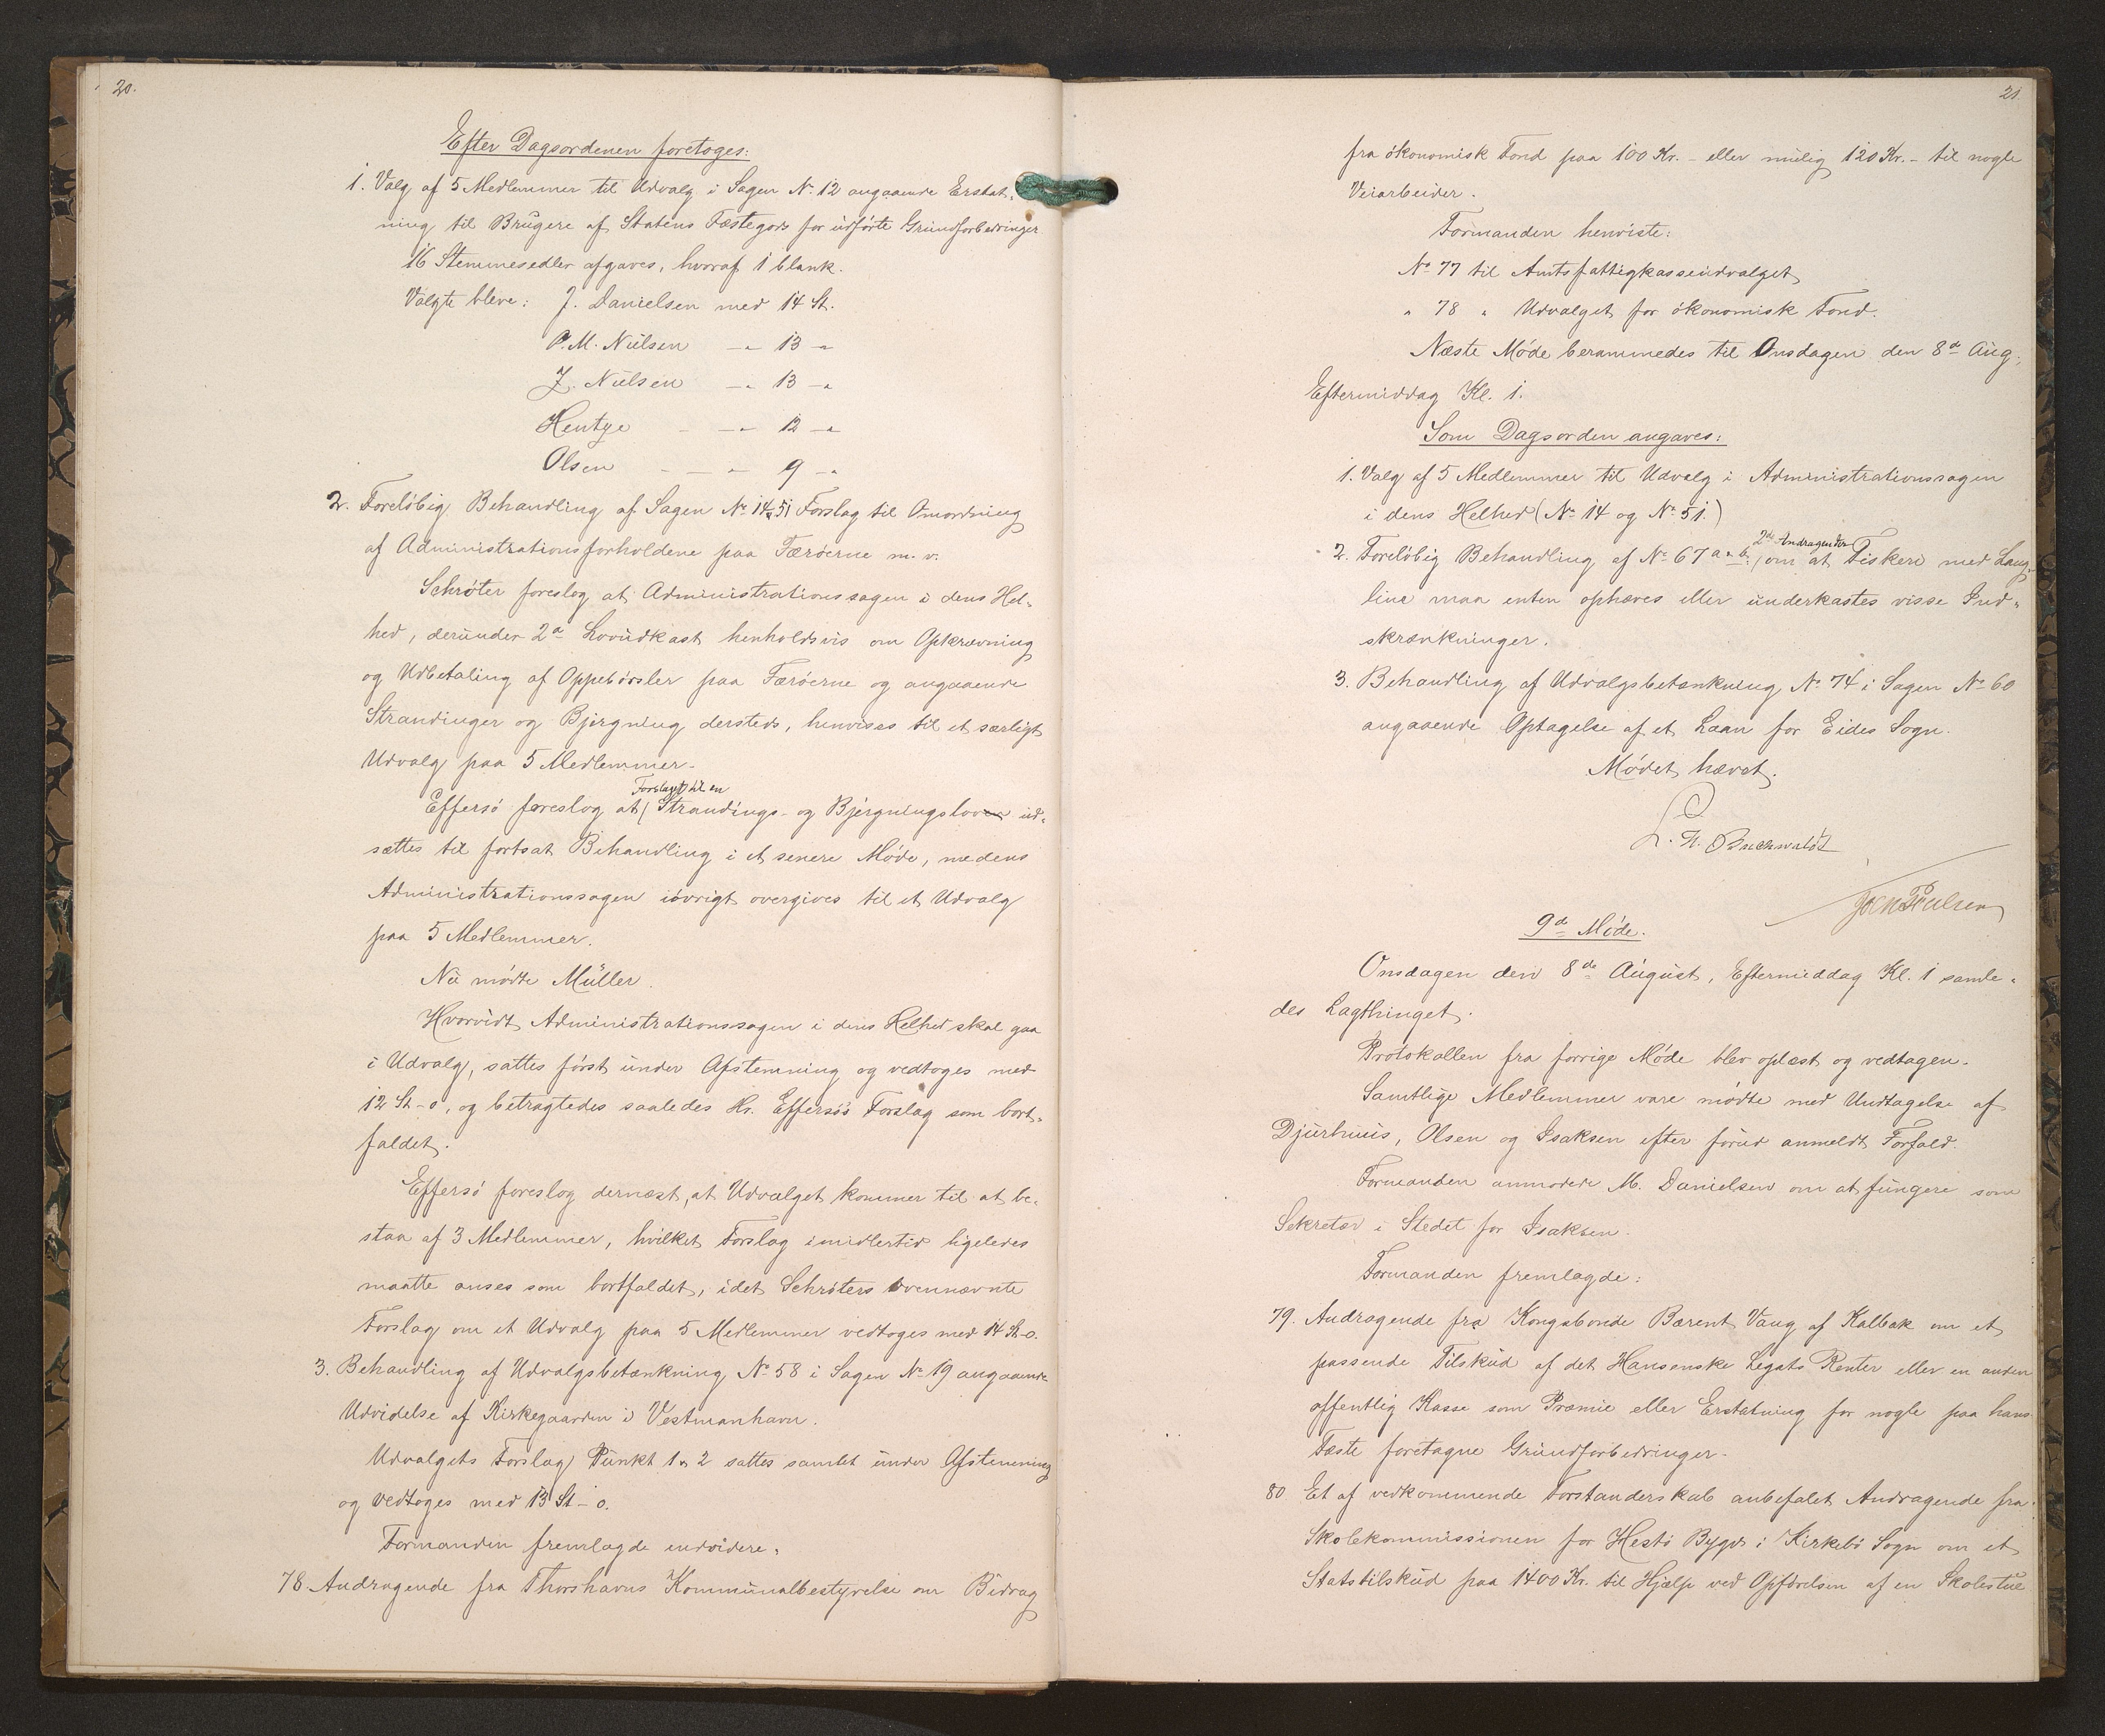 20.
Efter Dagsordenen foretoges:
1. Valg af 5 Medlemmer til Udvalg i Sagen No 12 angaaende Erstat-
ning til Brugere af Statens Fæstegods for udførte Grundforbedringer
16 Stemmesedler afgaves, hvoraf 1 blank.
Valgte bleve: J. Danielsen med 14 St.
P. M. Nielsen -"- 13 -"
J. Nielsen -"- 13 -"
Hentze - -"- 12 -"
Olsen - - -"- 9 -"
2. Foreløbig Behandling af Sagen No 14 & 51 Forslag til Omordning
af Administrationsforholdene paa Færøerne m. v.
Schrøter foreslog at Administrationssagen i dens Hel-
hed, derunder 2de Lovudkast henholdsvis om Opkrævning
og Udbetaling af Oppebørsler paa Færøerne og angaaende
Strandinger og Bjergning dersteds, henvises til et særligt
Udvalg paa 5 Medlemmer.
Effersø foreslog at Forslaget til en Strandings- og Bjergningslov ud-
sættes til fortsat Behandling i et senere Møde, medens
Administrationssagen iøvrigt overgives til et Udvalg
paa 5 Medlemmer.
Nu mødte Müller.
Hvorvidt Administrationssagen i dens Helhed skal gaa
i Udvalg, sattes først under Afstemning og vedtoges med
12 St - 0, og betragtedes saaledes Hr. Effersø's Forslag som bort-
faldet.
Effersø foreslog dernæst, at Udvalget kommer til at be-
staa af 3 Medlemmer, hvilket Forslag imidlertid ligeledes
maatte anses som bortfaldet, idet Schrøters ovennævnte
Forslag om et Udvalg paa 5 Medlemmer vedtoges med 14 St-0.
3. Behandling af Udvalgsbetænkning No 58 i Sagen No 19 angaaende
Udvidelse af Kirkegaarden i Vestmanhavn.
Udvalgets Forslag Punkt 1 & 2 sattes samlet under Afstemning
og vedtoges med 13 St - 0.
Formanden fremlagde endvidere:
78. Andragende fra Thorshavns Kommunalbestyrelse om Bidrag
21.
fra økonomisk Fond paa 100 Kr. - eller mulig 120 Kr. - til nogle
Veiarbeider.
Formanden henviste:
No 77 til Amtsfattigkasseudvalget
" 78 " Udvalget for økonomisk Fond.
Næste Møde berammedes til Onsdagen den 8de Aug.,
Eftermiddag Kl. 1.
Som Dagsorden angaves:
1. Valg af 5 Medlemmer til Udvalg i Administrationssagen
i dens Helhed (No 14 og No 51.)
2. Foreløbig Behandling af No 67 a & b, 2de Andragender om at Fiskeri med Lang-
line maa enten ophæves eller underkastes visse Ind-
skrænkninger.
3. Behandling af Udvalgsbetænkning No 74 i Sagen No 60
angaaende Optagelse af et Laan for Eides Sogn.
Mødet hævet.
C. N. Buchwaldt
Joen Poulsen
9de Møde.
Onsdagen den 8de August, Eftermiddag Kl. 1 samle-
des Lagthinget.
Protokollen fra forrige Møde blev oplæst og vedtagen.
Samtlige Medlemmer vare mødte med Undtagelse af
Djurhuus, Olsen og Isaksen efter forud anmeldt Forfald.
Formanden anmodede M. Danielsen om at fungere som
Sekretær i Stedet for Isaksen.
Formanden fremlagde:
79. Andragende fra Kongsbonde Bærent Vang af Kalbak om et
passende Tilskud af det Hansenske Legats Renter eller en anden
offentlig Kasse som Præmie eller Erstatning for nogle paa hans
Fæste foretagne Grundforbedringer.
80 Et af vedkommende Forstanderskab anbefalet Andragende fra
Skolekommissionen for Hestø Bygd i Kirkebø Sogn om et
Statstilskud paa 1400 Kr. til Hjælp ved Opførelsen af en Skolestue